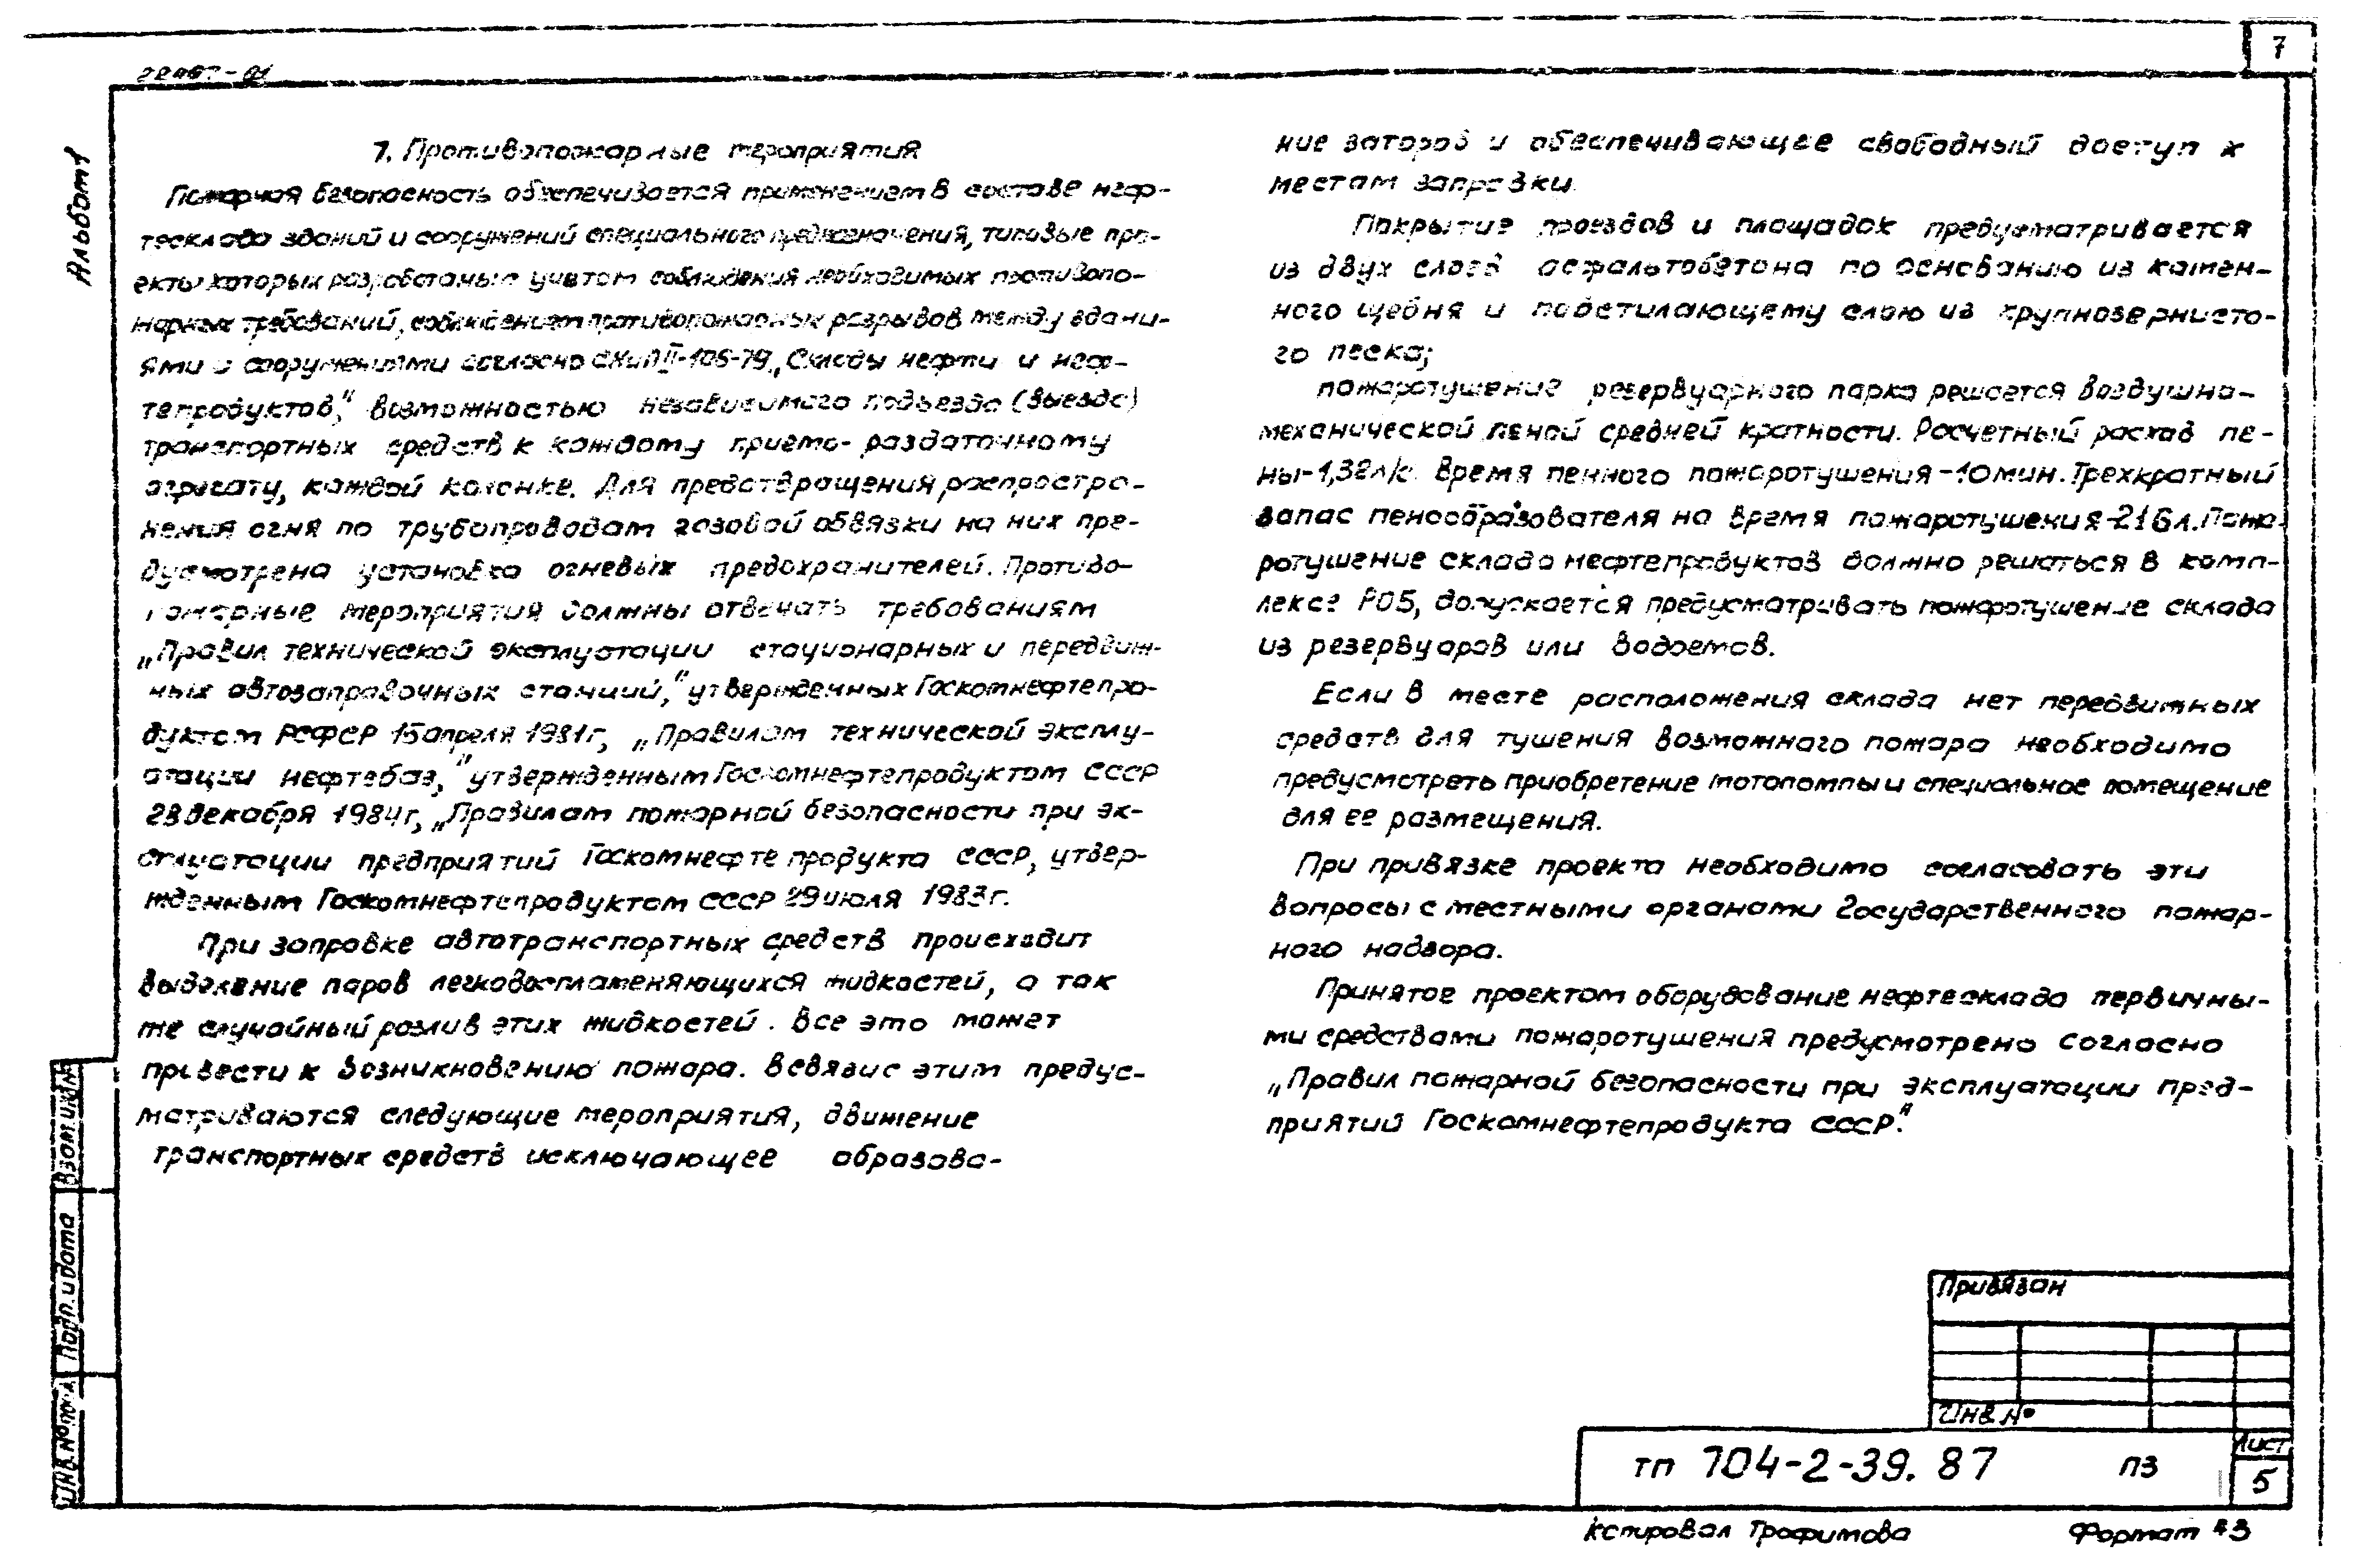 7
Альбом 1
7. Противопожарные мероприятия
Пожарная безопасность обеспечивается применением в составе неф-
тесклада зданий и сооружений специального предназначения, типовые про-
екты которых разработаны с учетом соблюдения необходимых противопо-
жарных требований, соблюдением противопожарных разрывов между здани-
ями и сооружениями согласно СНиП II-106-79 „Склады нефти и неф-
тепродуктов," возможностью независимого подъезда (выезда)
транспортных средств к каждому приемо-раздаточному
агрегату, каждой колонке. Для предотвращения распростра-
нения огня по трубопроводам газовой обвязки на них пре-
дусмотрена установка огневых предохранителей. Противо-
пожарные мероприятия должны отвечать требованиям
„Правил технической эксплуатации стационарных и передвиж-
ных автозаправочных станций," утвержденных Госкомнефтепро-
дуктом РСФСР 15 апреля 1981г, „Правилам технической эксплу-
атации нефтебаз," утвержденным Госкомнефтепродуктом СССР
28 декабря 1984г, „Правилам пожарной безопасности при эк-
сплуатации предприятий Госкомнефтепродукта СССР, утвер-
жденным Госкомнефтепродуктом СССР 29 июля 1983г.
При заправке автотранспортных средств происходит
выделение паров легковоспламеняющихся жидкостей, а так
же случайный розлив этих жидкостей. Все это может
привести к возникновению пожара. В связи с этим предус-
матриваются следующие мероприятия, движение
транспортных средств исключающее образова-
ние заторов и обеспечивающее свободный доступ к
местам заправки.
Покрытие проездов и площадок предусматривается
из двух слоев асфальтобетона по основанию из камен-
ного щебня и подстилающему слою из крупнозернисто-
го песка;
пожаротушение резервуарного парка решается воздушно-
механической пеной средней кратности. Расчетный расход пе-
ны-1,38л/с. Время пенного пожаротушения-10мин. Трехкратный
запас пенообразователя на время пожаротушения-216л. Пожа-
ротушение склада нефтепродуктов должно решаться в комп-
лексе РОБ, допускается предусматривать пожаротушение склада
из резервуаров или водоемов.
Если в месте расположения склада нет передвижных
средств для тушения возможного пожара необходимо
предусмотреть приобретение мотопомпы и специальное помещение
для ее размещения.
При привязке проекта необходимо согласовать эти
вопросы с местными органами Государственного пожар-
ного надзора.
Принятое проектом оборудование нефтесклада первичны-
ми средствами пожаротушения предусмотрено согласно
„Правил пожарной безопасности при эксплуатации пред-
приятий Госкомнефтепродукта СССР."
Взам.инв№
Подп. и дата
Инв.№ подл
Привязан
Инв.№
ТП 704-2-39.87 ПЗ
Лист
5
Копировал Трофимова Формат А3